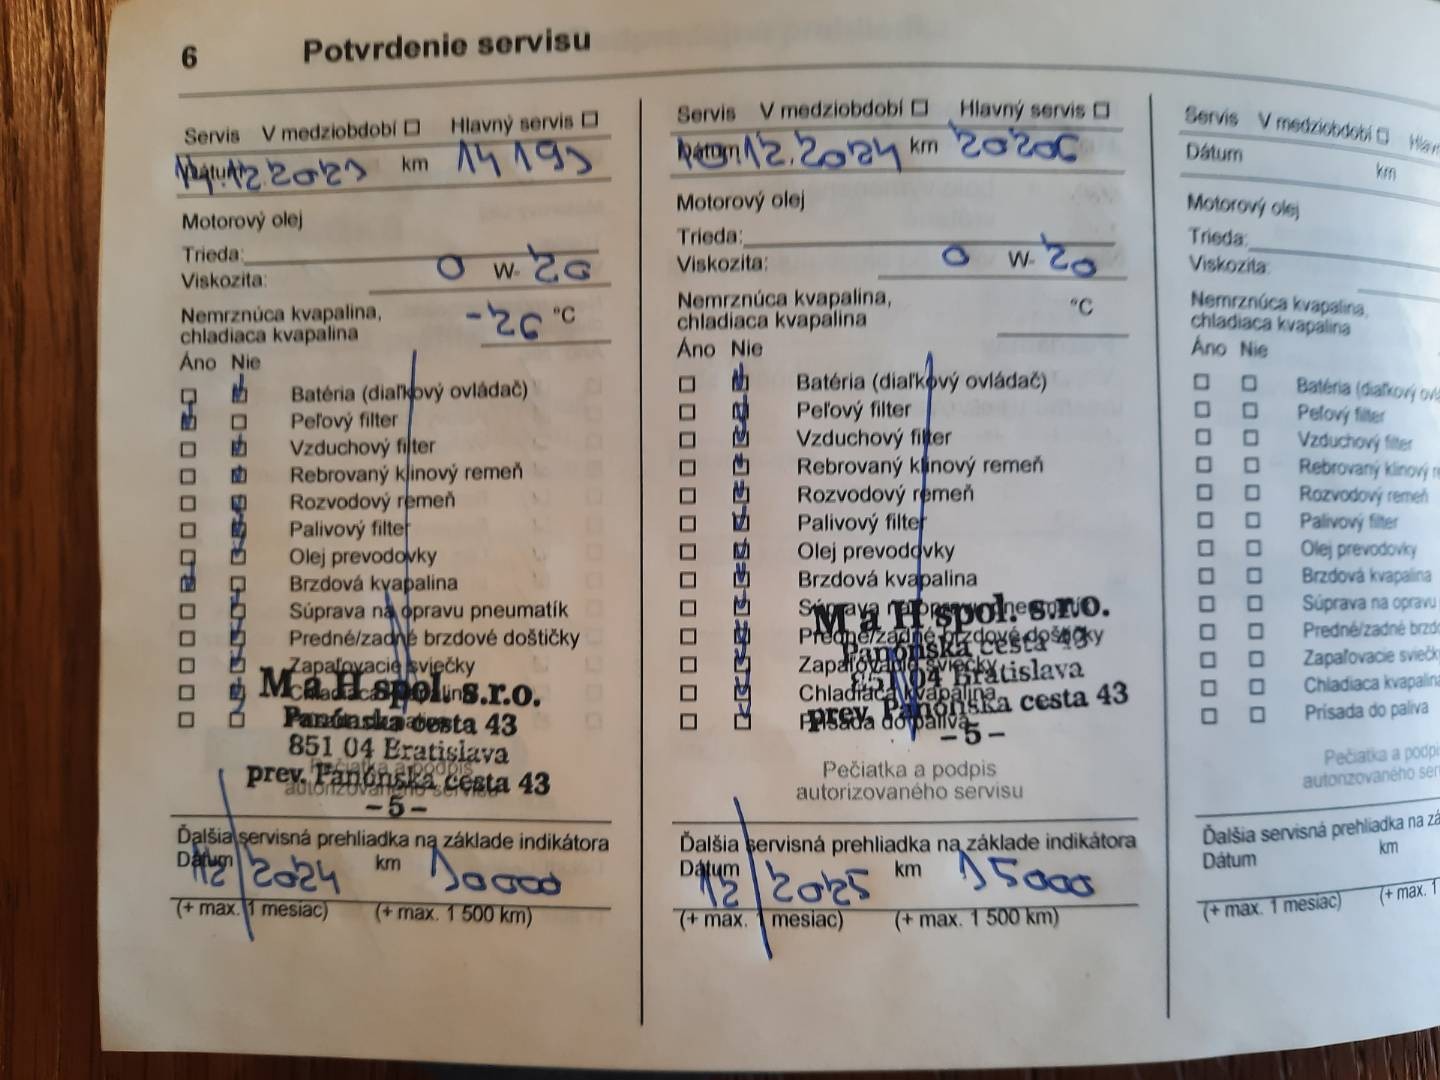 6 Potvrdenie servisu
Servis V medziobdobí Hlavný servis
Dátum 14.12.2023 km 14193
Motorový olej
Trieda:
Viskozita: 0 W- 20
Nemrznúca kvapalina,
chladiaca kvapalina -26 °C
Áno Nie
Batéria (diaľkový ovládač)
Peľový filter
Vzduchový filter
Rebrovaný klinový remeň
Rozvodový remeň
Palivový filter
Olej prevodovky
Brzdová kvapalina
Súprava na opravu pneumatík
Predné/zadné brzdové doštičky
Zapaľovacie sviečky
Chladiaca kvapalina
M a H spol. s.r.o.
Panónska cesta 43
851 04 Bratislava
Pečiatka a podpis
prev. Panónska cesta 43
autorizovaného servisu
-5-
Ďalšia servisná prehliadka na základe indikátora
Dátum 12/2024 km 30000
(+ max. 1 mesiac) (+ max. 1 500 km)
Servis V medziobdobí Hlavný servis
Dátum 12.2024 km 20206
Motorový olej
Trieda:
Viskozita: 0 W- 20
Nemrznúca kvapalina, °C
chladiaca kvapalina
Áno Nie
Batéria (diaľkový ovládač)
Peľový filter
Vzduchový filter
Rebrovaný klinový remeň
Rozvodový remeň
Palivový filter
Olej prevodovky
Brzdová kvapalina
Súprava na opravu pneumatík
M a H spol. s.r.o.
Predné/zadné brzdové doštičky
Panónska cesta 43
Zapaľovacie sviečky
851 04 Bratislava
Chladiaca kvapalina
prev. Panónska cesta 43
Prísada do paliva
-5-
Pečiatka a podpis
autorizovaného servisu
Ďalšia servisná prehliadka na základe indikátora
Dátum 12/2025 km 35000
(+ max. 1 mesiac) (+ max. 1 500 km)
Servis V medziobdobí
Dátum km
Motorový olej
Trieda:
Viskozita:
Nemrznúca kvapalina,
chladiaca kvapalina
Áno Nie
Batéria (diaľkový
Peľový filter
Vzduchový filter
Rebrovaný klinový
Rozvodový remeň
Palivový filter
Olej prevodovky
Brzdová kvapalina
Súprava na opravu
Predné/zadné
Zapaľovacie
Chladiaca kvapalina
Prísada do paliva
Pečiatka a
autorizovaného
Ďalšia servisná prehliadka na
Dátum km
(+ max. 1 mesiac) (+ max.